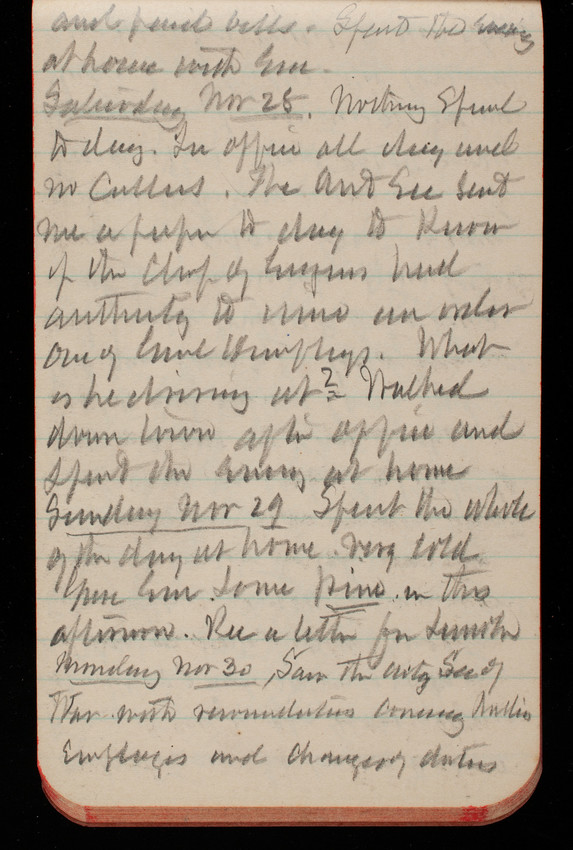 and paid bills. Spent the evening
at home with
Saturday Nov 28. Nothing Special
to day. In office all day and
no Callers. The Asst Sec Sent
me a paper to day to Know
if the Chf of had
authority to issue an order
. What
is he driving at? Walked
down town after office and
Spent the evening at home
Sunday Nov 29 Spent the whole
of the day at home. Very cold
here. Some in this
afternoon. Rec a letter
Monday Nov 30, Saw the Sec of
War with
Employes and changes of duties